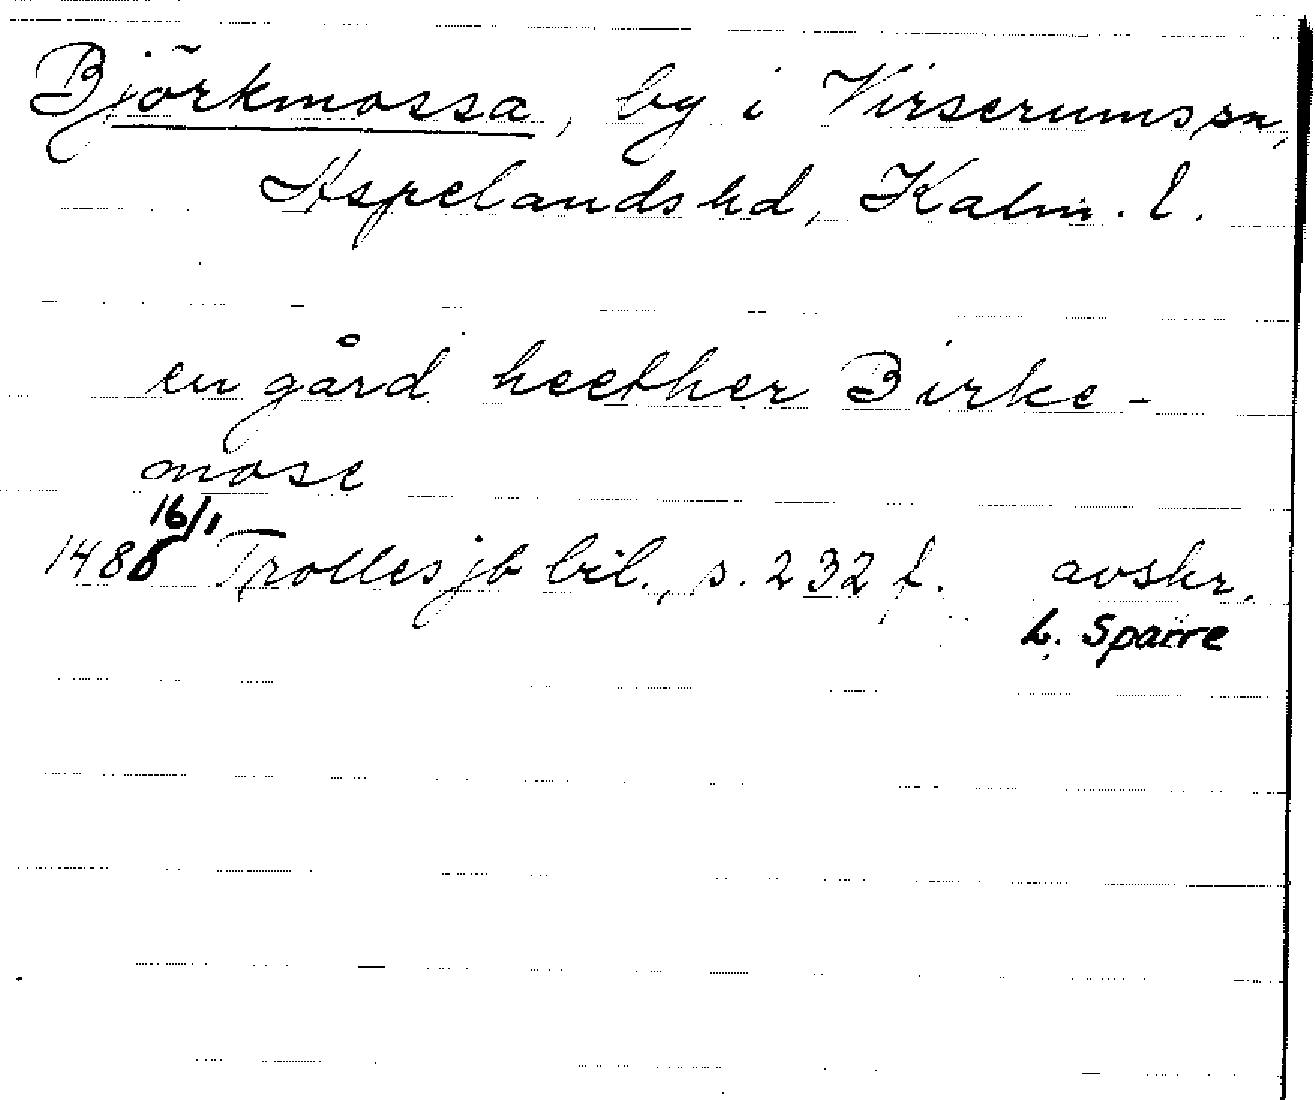 Björkmossa, by i Virserums sn,
Aspelands hd, Kalm. l.
en gård heether Birke-
mose
16/1
Trolles jb bil., s. 232 f. avskr.
L. Sparre